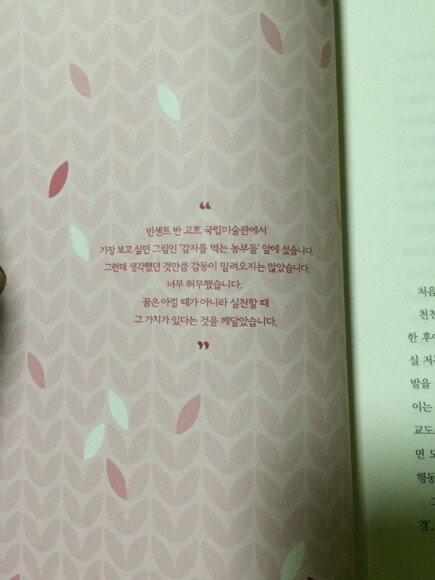 “
빈센트 반 고흐 국립미술관에서
가장 보고 싶던 그림인 ‘감자를 먹는 농부들’ 앞에 섰습니다.
그런데 생각했던 것만큼 감동이 밀려오지는 않았습니다.
너무 허무했습니다.
꿈은 아낄 때가 아니라 실천할 때
그 가치가 있다는 것을 깨달았습니다.
”
처음
천천
한 후에
실 저
발을
이는
교도
면 모
행동
그
경’,